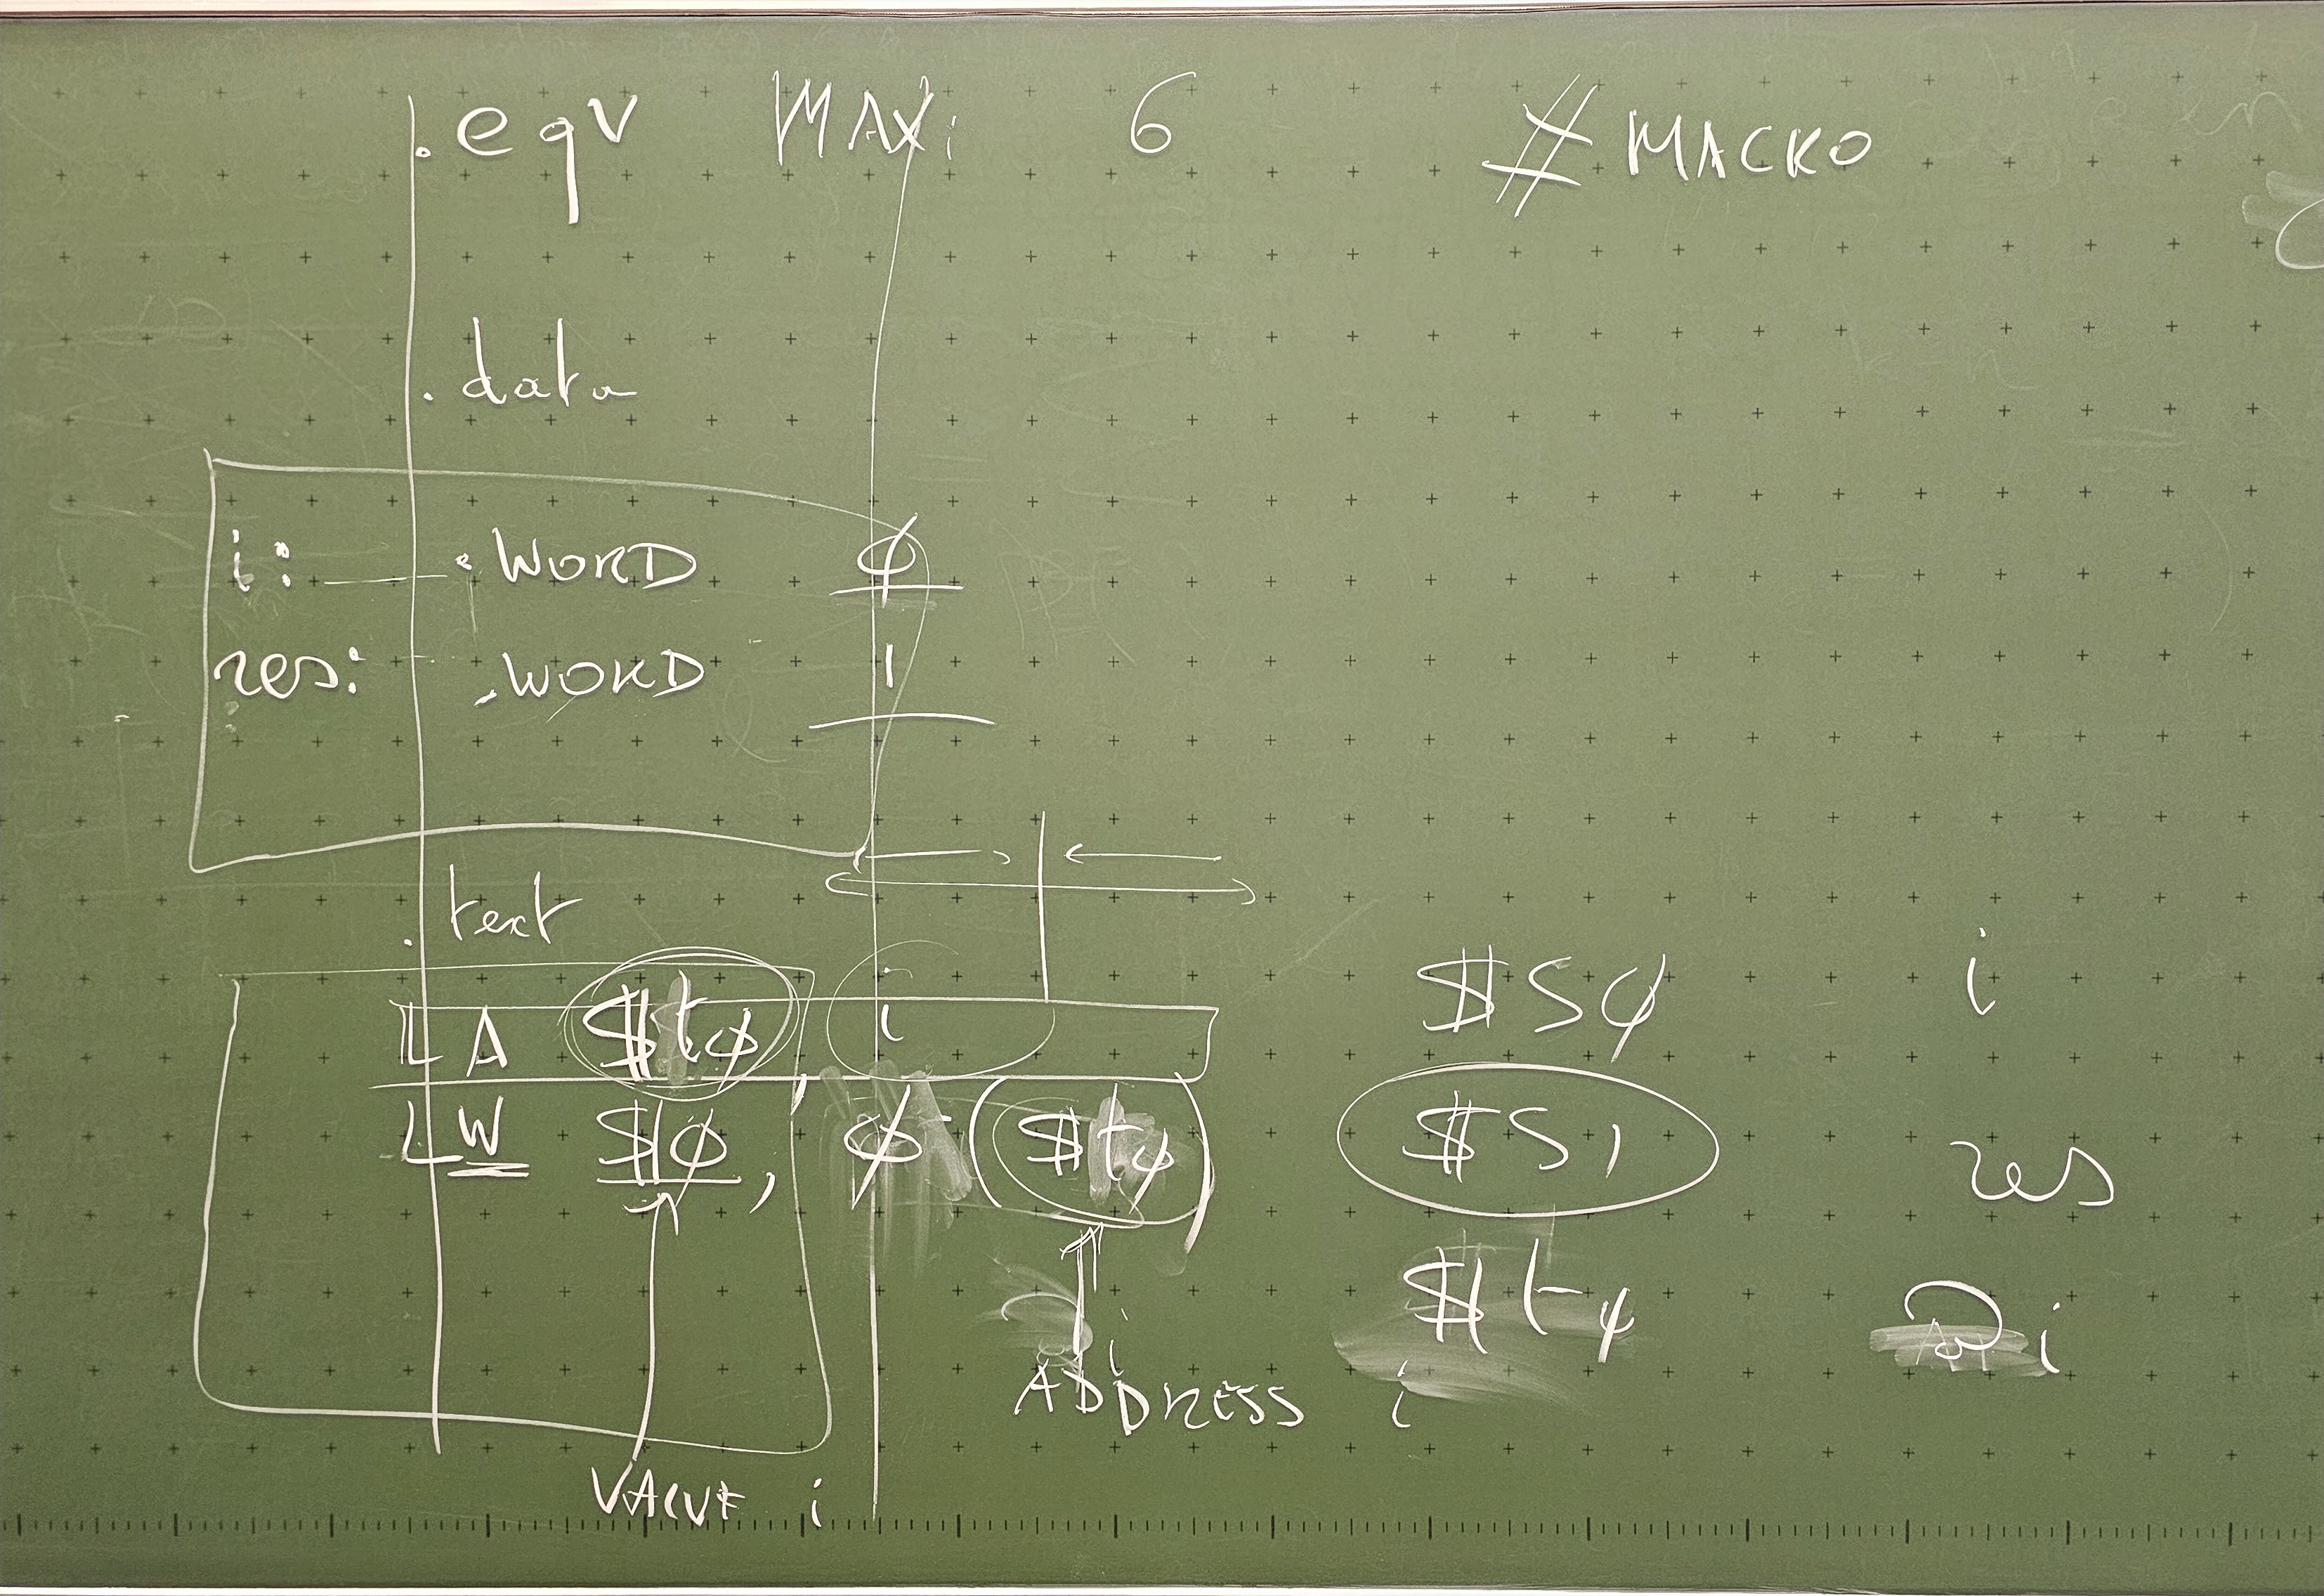 .eqv MAXi 6 #MACRO
.data
i: .WORD 0
res: .WORD 1
.text
LA $t0, i
LW $10, 0($t0)
$S0 i
$S1 res
$t0 @i
ADDRESS i
VALUE i